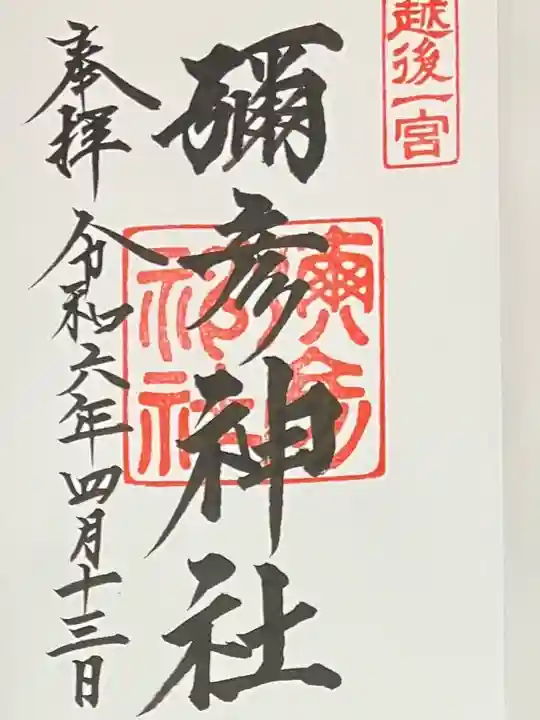 越後一宮
彌彦神社
奉拝 令和六年四月十三日
彌彦
神社